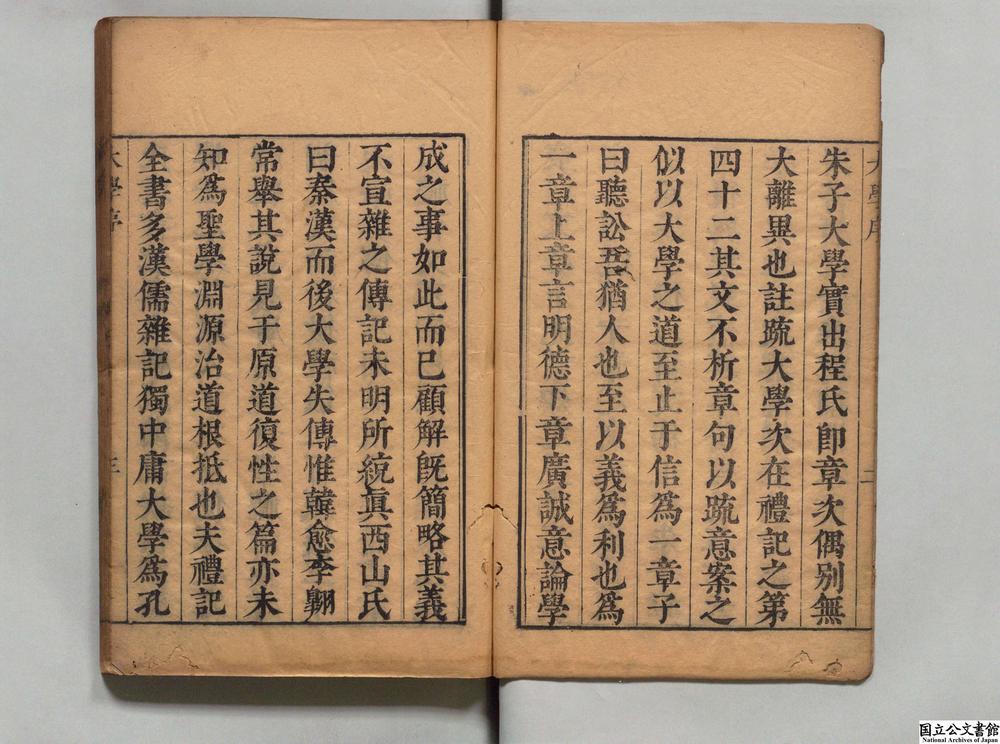 朱子大學實出程氏卽章次偶別無
大離異也註疏大學次在禮記之第
四十二其文不析章句以疏意案之
似以大學之道至止于信爲一章子
曰聽訟吾猶人也至以義爲利也爲
一章上章言明德下章廣誠意論學
成之事如此而已顧解旣簡略其義
不宣雜之傳記未明所統眞西山氏
曰秦漢而後大學失傳惟韓愈李翺
常舉其說見于原道復性之篇亦未
知爲聖學淵源治道根抵也夫禮記
全書多漢儒雜記獨中庸大學爲孔
大學序
二
大學序
三
国立公文書館
National Archives of Japan